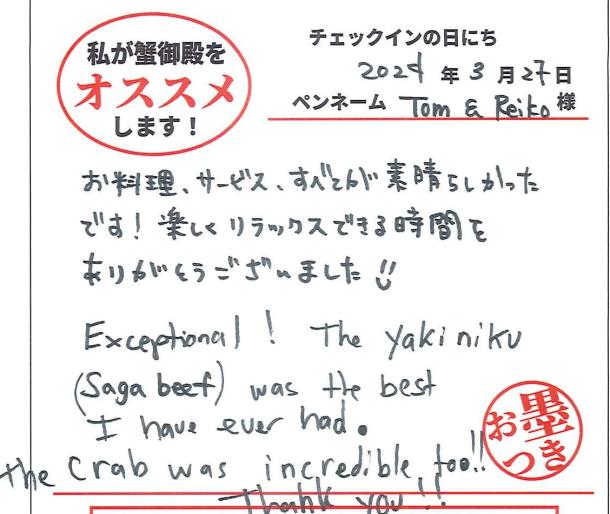 私が蟹御殿を
オススメ
します！
チェックインの日にち
2024年3月27日
ペンネーム Tom & Reiko 様
お料理、サービス、すべてが素晴らしかった
です！楽しくリラックスできる時間を
ありがとうございました!!
Exceptional! The yakiniku
(Saga beef) was the best
I have ever had.
the crab was incredible, too!!
Thank you!!
お墨
つき